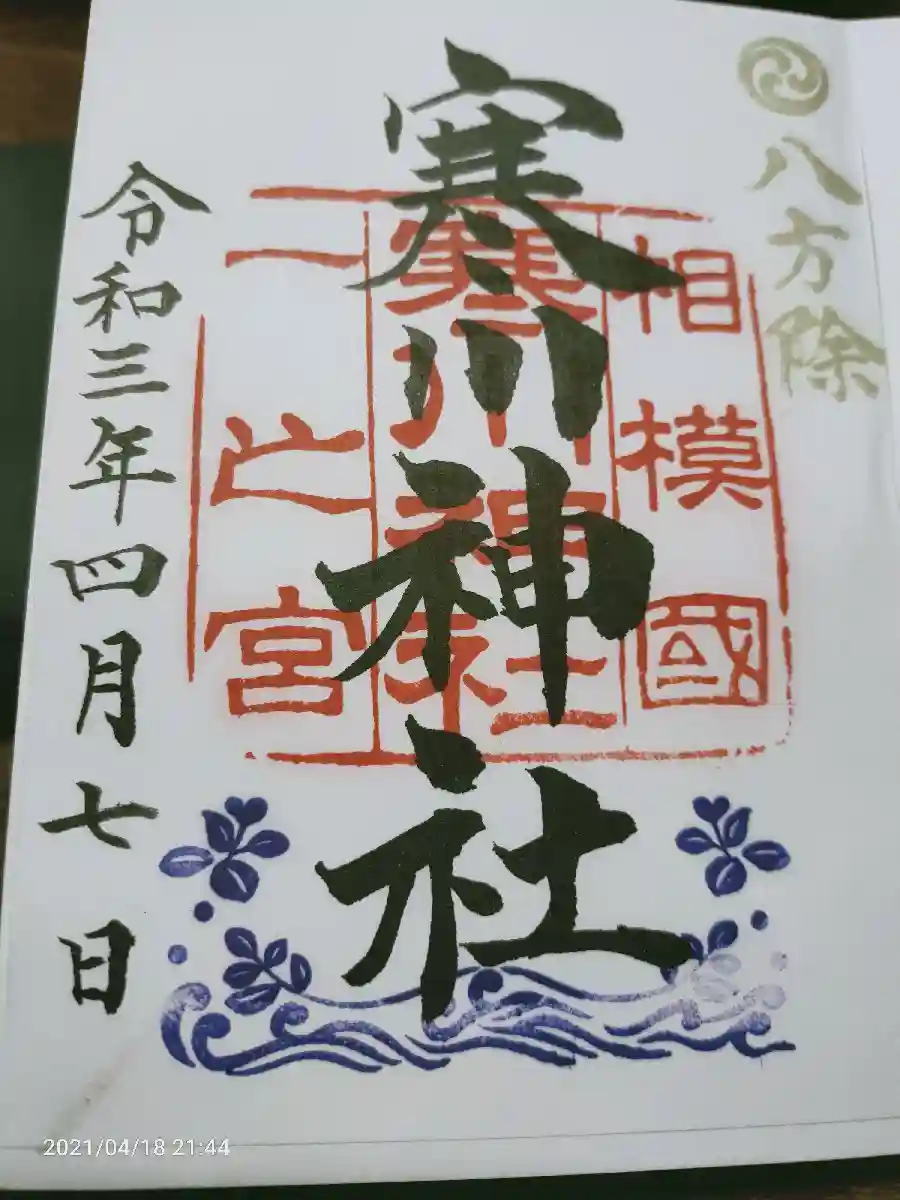 八方除
寒川神社
相模國
寒川神社
一之宮
令和三年四月七日
2021/04/18 21:44